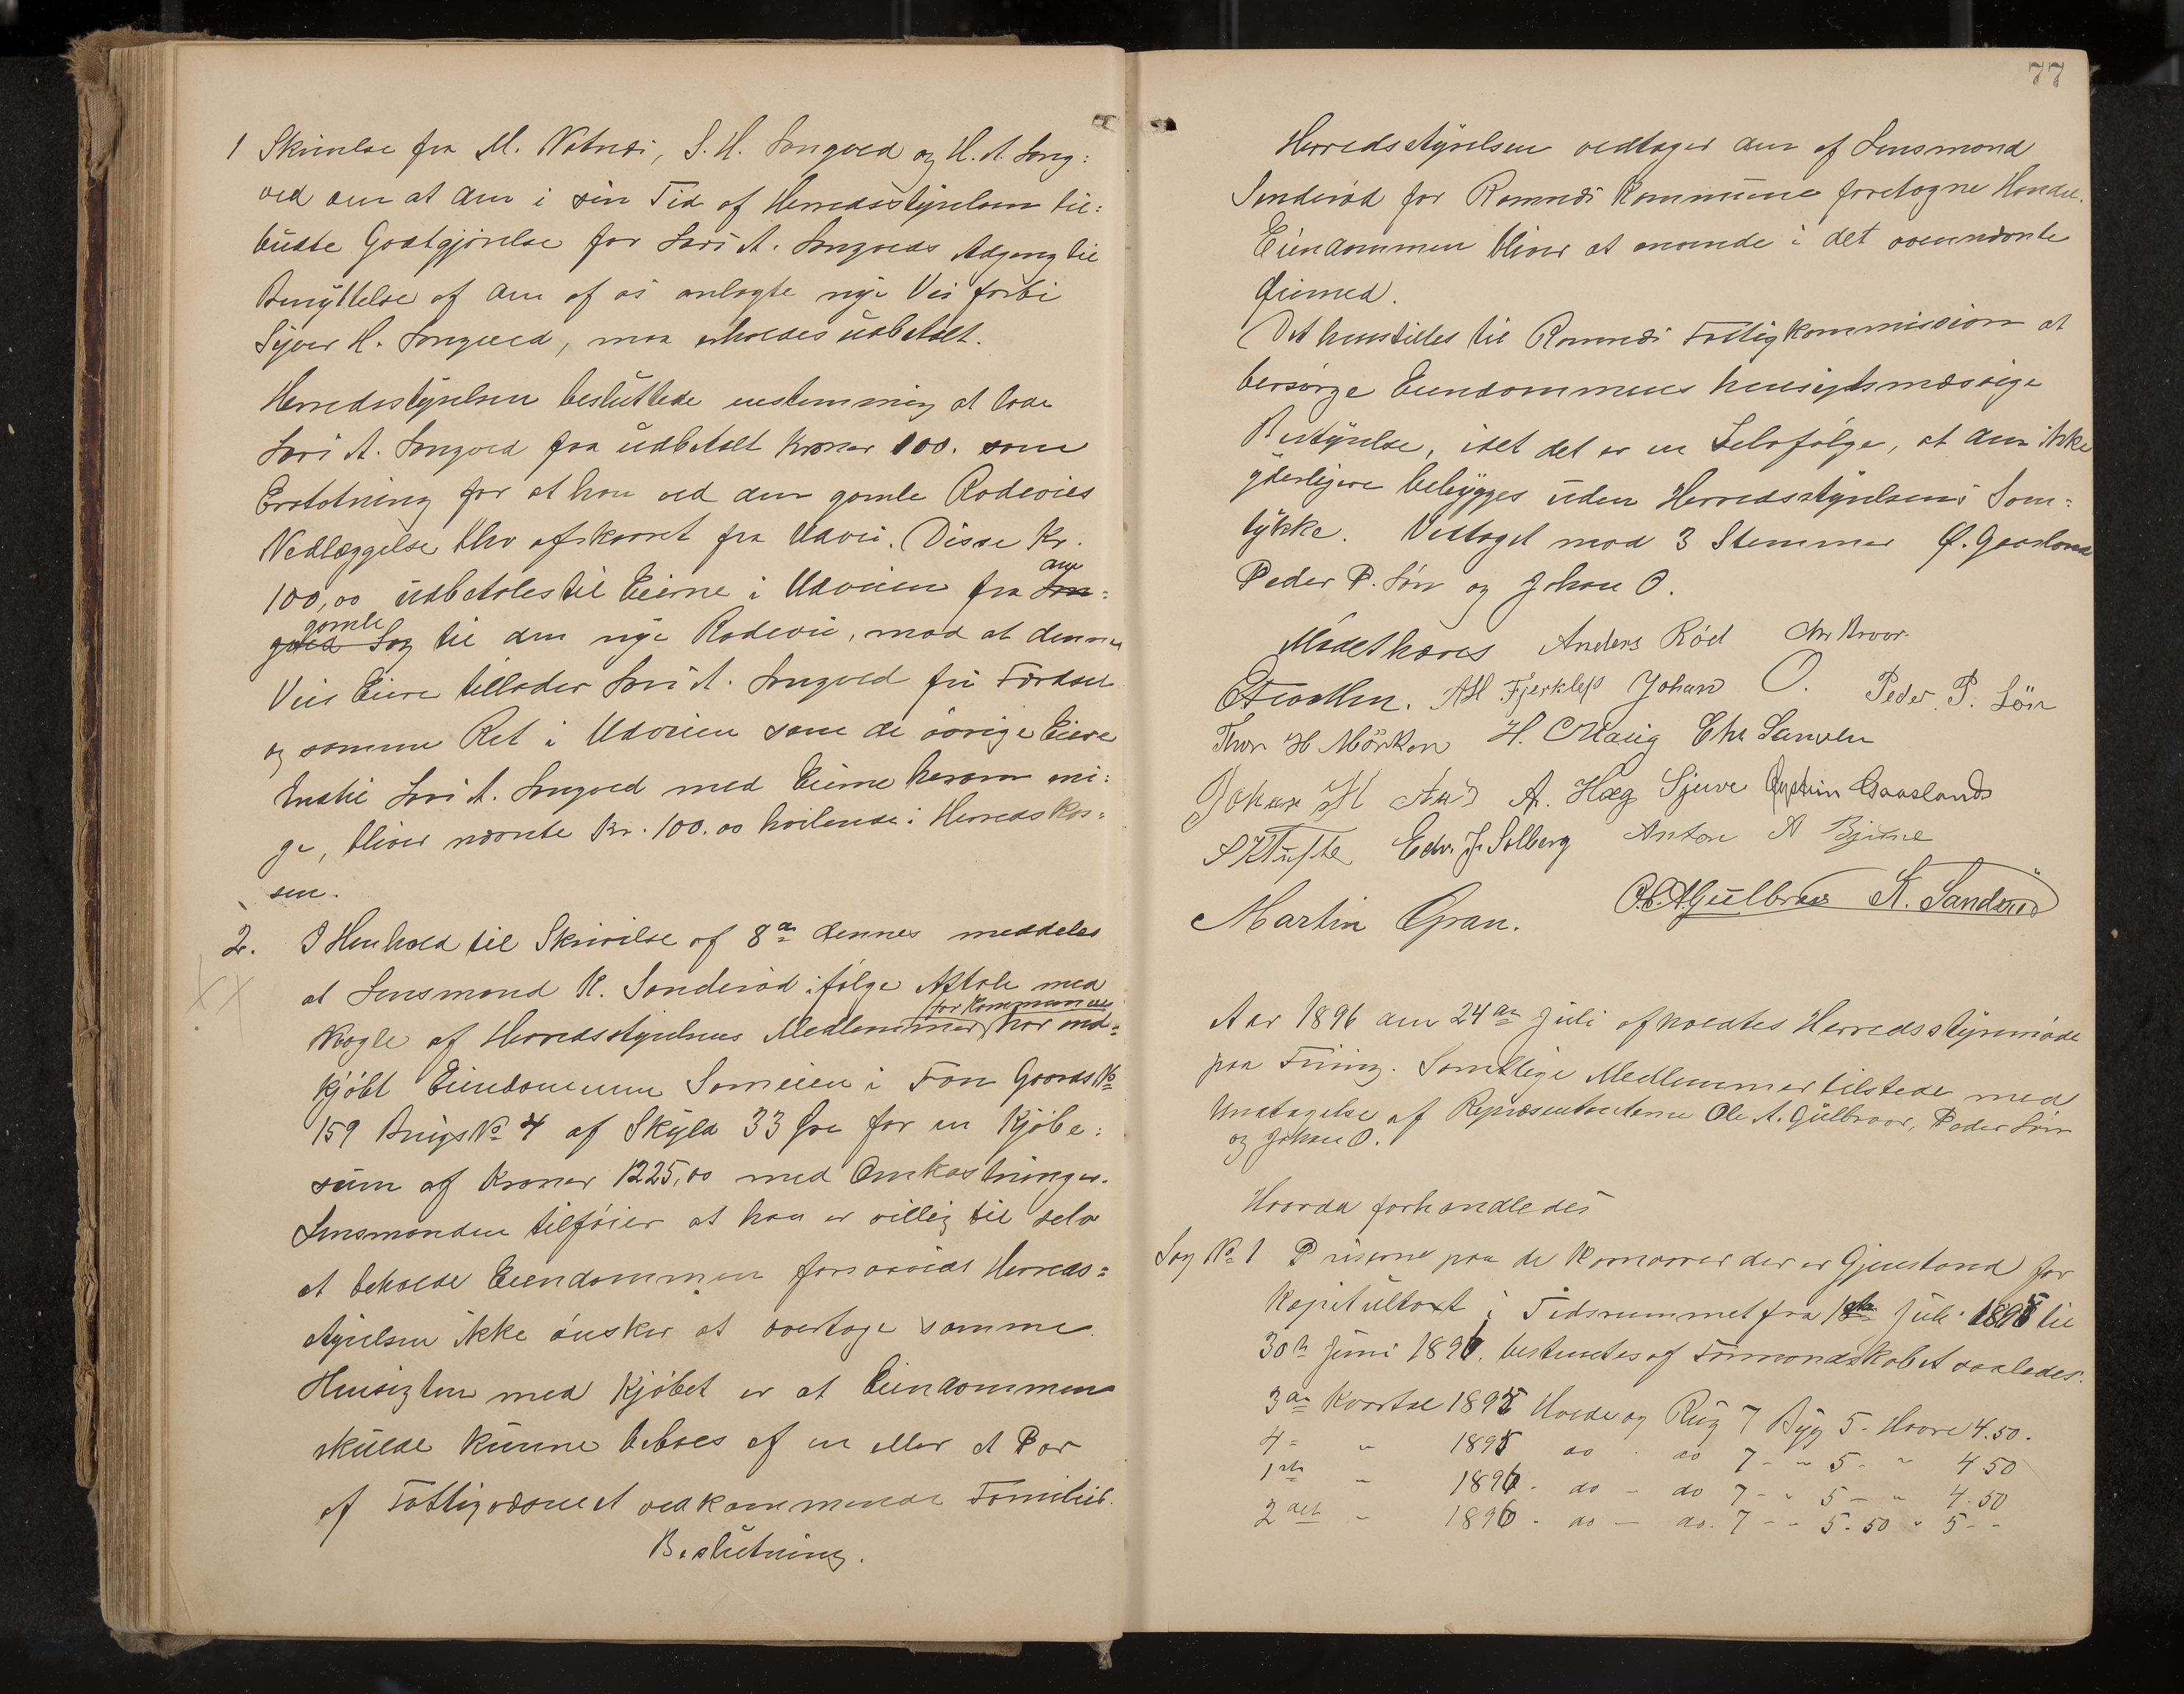 1 Skrivelse fra M. Natnæs, S. H. Langved og H. A. Lang:
ved om at den i sin Tid af Herredsstyrelsen til:
budte Godtgjørelse for Lars A. Langveds Adgang til
Benyttelse af den af os anlagte nye Vei forbi
Syver H. Langved, maa erholdes udbetalt.
Herredsstyrelsen besluttede enstemmig at lade
Lars A. Langved faa udbetalt Kroner 100. som
Erstatning for at han ved den gamle Rodeveies
Nedlæggelse blev afskaaret fra Udvei. Disse Kr.
100,00 udbetales til Eierne i Udveien fra den
gamle til den nye Rodevei, mod at denne
Veis Eiere tillader Lars A. Langved fri Færdsel
og samme Ret i Udveien som de øvrige Eiere
Indtil Lars A. Langved med Eierne herom eni:
ge, bliver nævnte Kr. 100.00 hvilende i Herredskas:
sen.
2. I Henhold til Skrivelse af 8de dennes meddeles
at Lensmand K. Sanderød ifølge Aftale med
for Kommunen
Nogle af Herredsstyrelsens Medlemmer har ind=
kjøbt Eiendommen Sameien i Fon Gaards No
159 Brugs No 4 af Skyld 33 Øre for en Kjøbe:
sum af Kroner 1225,00 med Omkostninger.
Lensmanden tilføier at han er villig til selv
at beholde Eiendommen forsaavidt Herreds=
styrelsen ikke ønsker at overtage samme.
Hensigten med Kjøbet er at Eiendommen
skulde kunne beboes af en eller et Par
af Fattigvæsenet vedkommende Familier.
Beslutning.
77
Herredsstyrelsen vedtager den af Lensmand
Sanderød for Ramnæs Kommune foretagne Handel.
Eiendommen bliver at anvende i det ovennævnte
Øiemed.
Det henstilles til Ramnæs Fattigkommission at
besørge Eiendommens hensigtsmæssige
Bestyrelse, idet det er en Selvfølge, at den ikke
yderligere bebygges uden Herredsstyrelsens Sam=
tykke. Vedtaget mod 3 Stemmer Ø. Gaasland
Peder P. Lør og Johan O.
Mødet hæves Anders Rød Chr Kroer.
A H FjerkleP Johan O. Peder. P. Lör
Thor H Mörken H. C Maug Chr Sanven
Johan M A. Hæg Sjuve Øystein Gaasland
S K Tufte Edv. J. Solberg Anton A Bjune
Martin Gran. O. A. Gulbraar K. Sanderød
Aar 1896 den 24de Juli afholdtes Herredsstyremøde
paa Fining. Samtlige Medlemmer tilstede med
Undtagelse af Repræsentanterne Ole A. Gulbraar, Peder Lør
og Johan O.
Hvorda forhandledes
Sag No 1 Priserne paa de Kornvarer der er Gjenstand for
Kapitultaxt i Tidsrummet fra 1ste Juli 1895 til
30te Juni 1896. bestemtes af Formandskabet saaledes:
3de Kvartal 1895 Hvede og Rug 7 Byg 5 - Havre 4.50.
4 - " 1895 do . do 7 - " 5 - " 4 50
1ste " 1896 - do - do 7 - " 5 - " 4.50
2det " 1896 - do - do. 7 - " 5.50 " 5 - -